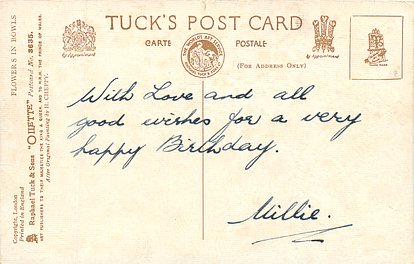 TUCK'S POST CARD
CARTE POSTALE
(FOR ADDRESS ONLY)
By Appointment
By Appointment
With Love and all
good wishes for a very
happy Birthday.
Millie.
FLOWERS IN BOWLS
Raphael Tuck & Sons "OILETTE" Postcard No. 8635.
ART PUBLISHERS TO THEIR MAJESTIES THE KING & QUEEN, AND TO H.R.H. THE PRINCE OF WALES.
After Original Painting by H. CHEFFY.
Copyright, London
Printed in England